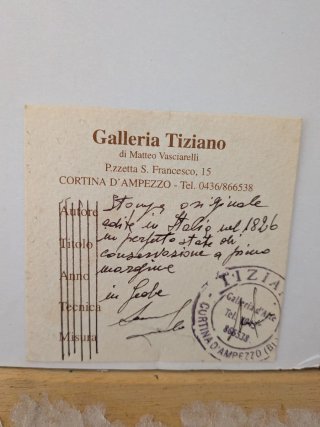 Galleria Tiziano
di Matteo Vasciarelli
P.zzetta S. Francesco, 15
CORTINA D'AMPEZZO - Tel. 0436/866538
Autore
Stampa originale
edita in Italia nel 1826
Titolo
in perfetto stato di
conservazione a pieno
Anno
margine
Tecnica
in fede
Misura
TIZIA
Galleria d'Arte
Tel.
866538
CORTINA D'AMPEZZO (BL)